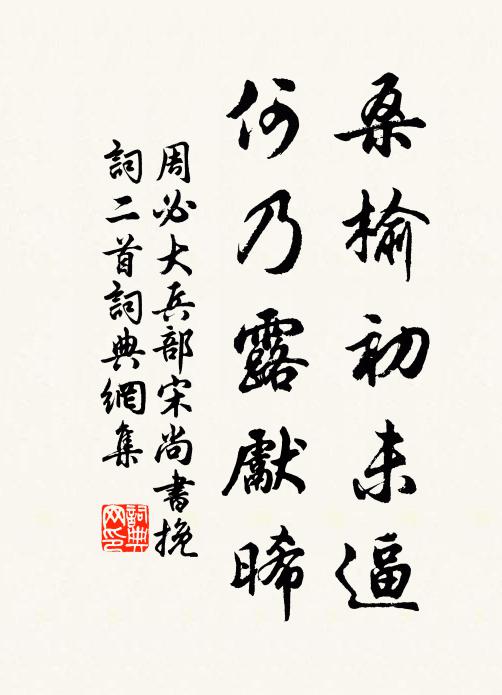 桑榆初未逼
何乃露獻晞
周必大兵部宋尚書挽
詞二首詞典網集
詞典
网印